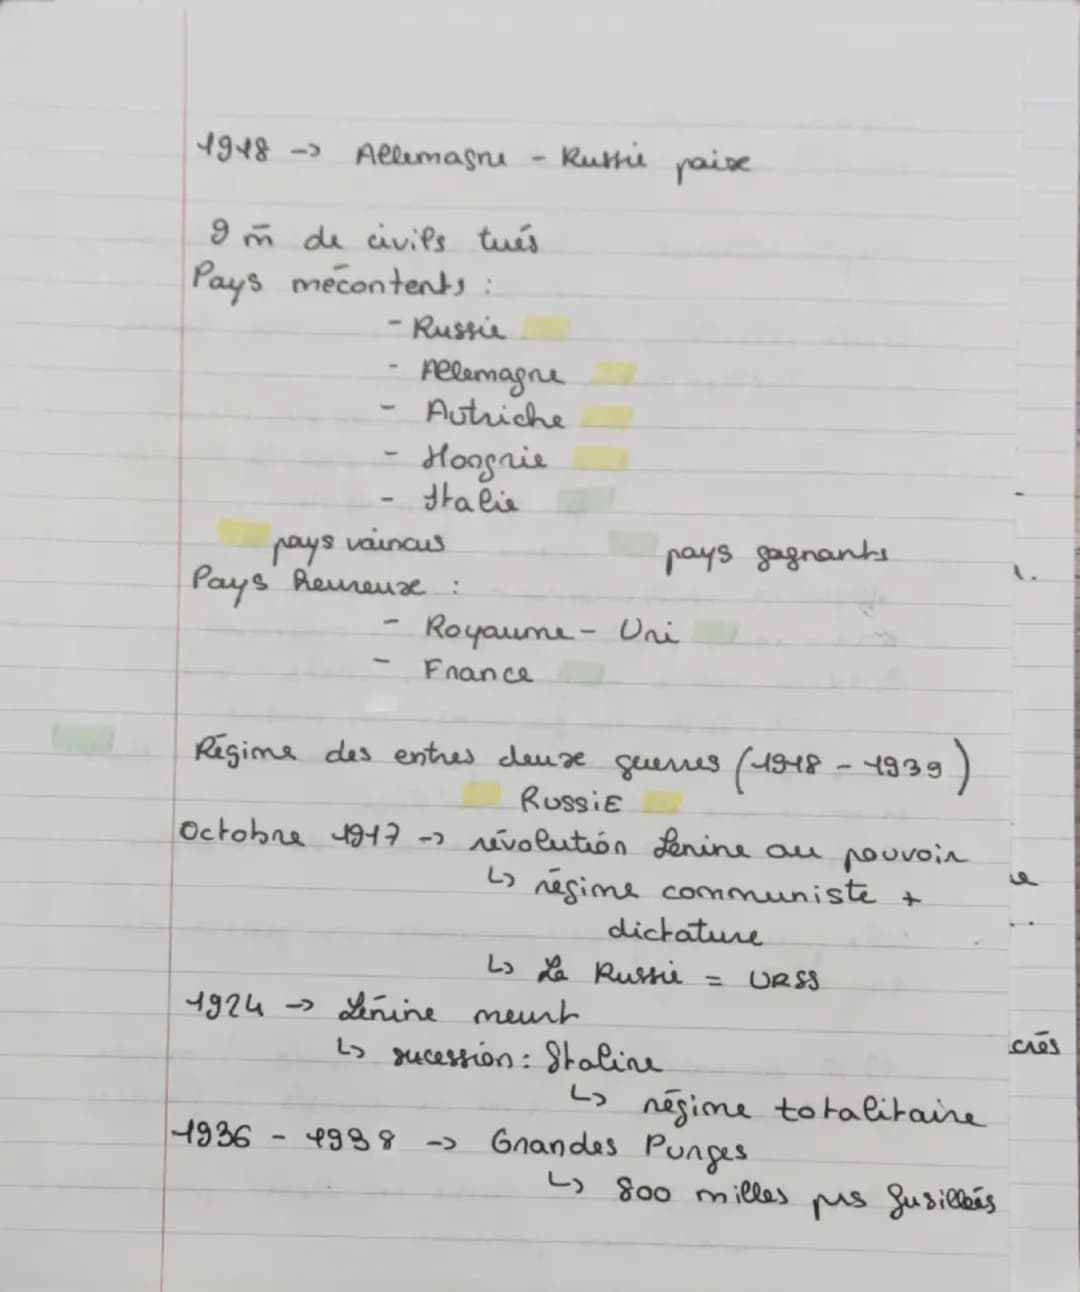 1918 -> Allemagne - Russie paix
9 m̃ de civils tués
Pays mécontents :
- Russie
- Allemagne
- Autriche
- Hongrie
- Italie
pays vaincus pays gagnants
Pays heureux :
- Royaume-Uni
- France
Régime des entres deux guerres (1918 - 1939)
RUSSIE
Octobre 1917 -> révolution Lénine au pouvoir
↳ régime communiste +
dictature
↳ La Russie = URSS
1924 -> Lénine meurt
↳ sucession : Staline
↳ régime totalitaire
1936 - 1938 -> Grandes Purges
↳ 800 milles prs fusillées
crés